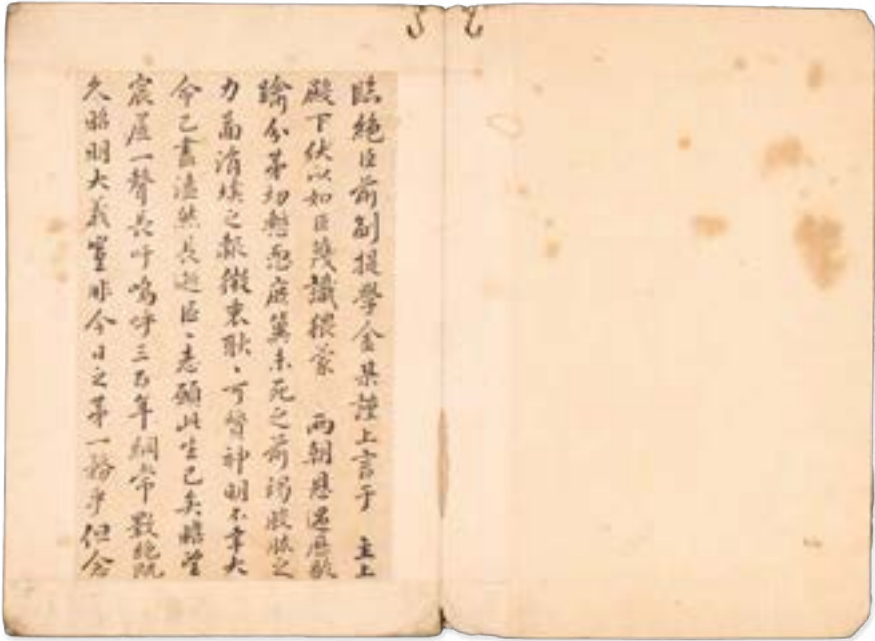 臨絶臣前副提學金 謹上言于 主上
殿下伏以如臣蔑識猥蒙 兩朝恩遇歷敭
踰分第切慙恧庶冀未死之前竭股肱之
力而涓埃之報微衷耿〻可質神明不幸大
命已盡溘然長逝臣〻志願此生已矣瞻望
宸扆一聲長吁嗚呼三百年綱常斁絶旣
久昭明大義豈非今日之第一務乎但念